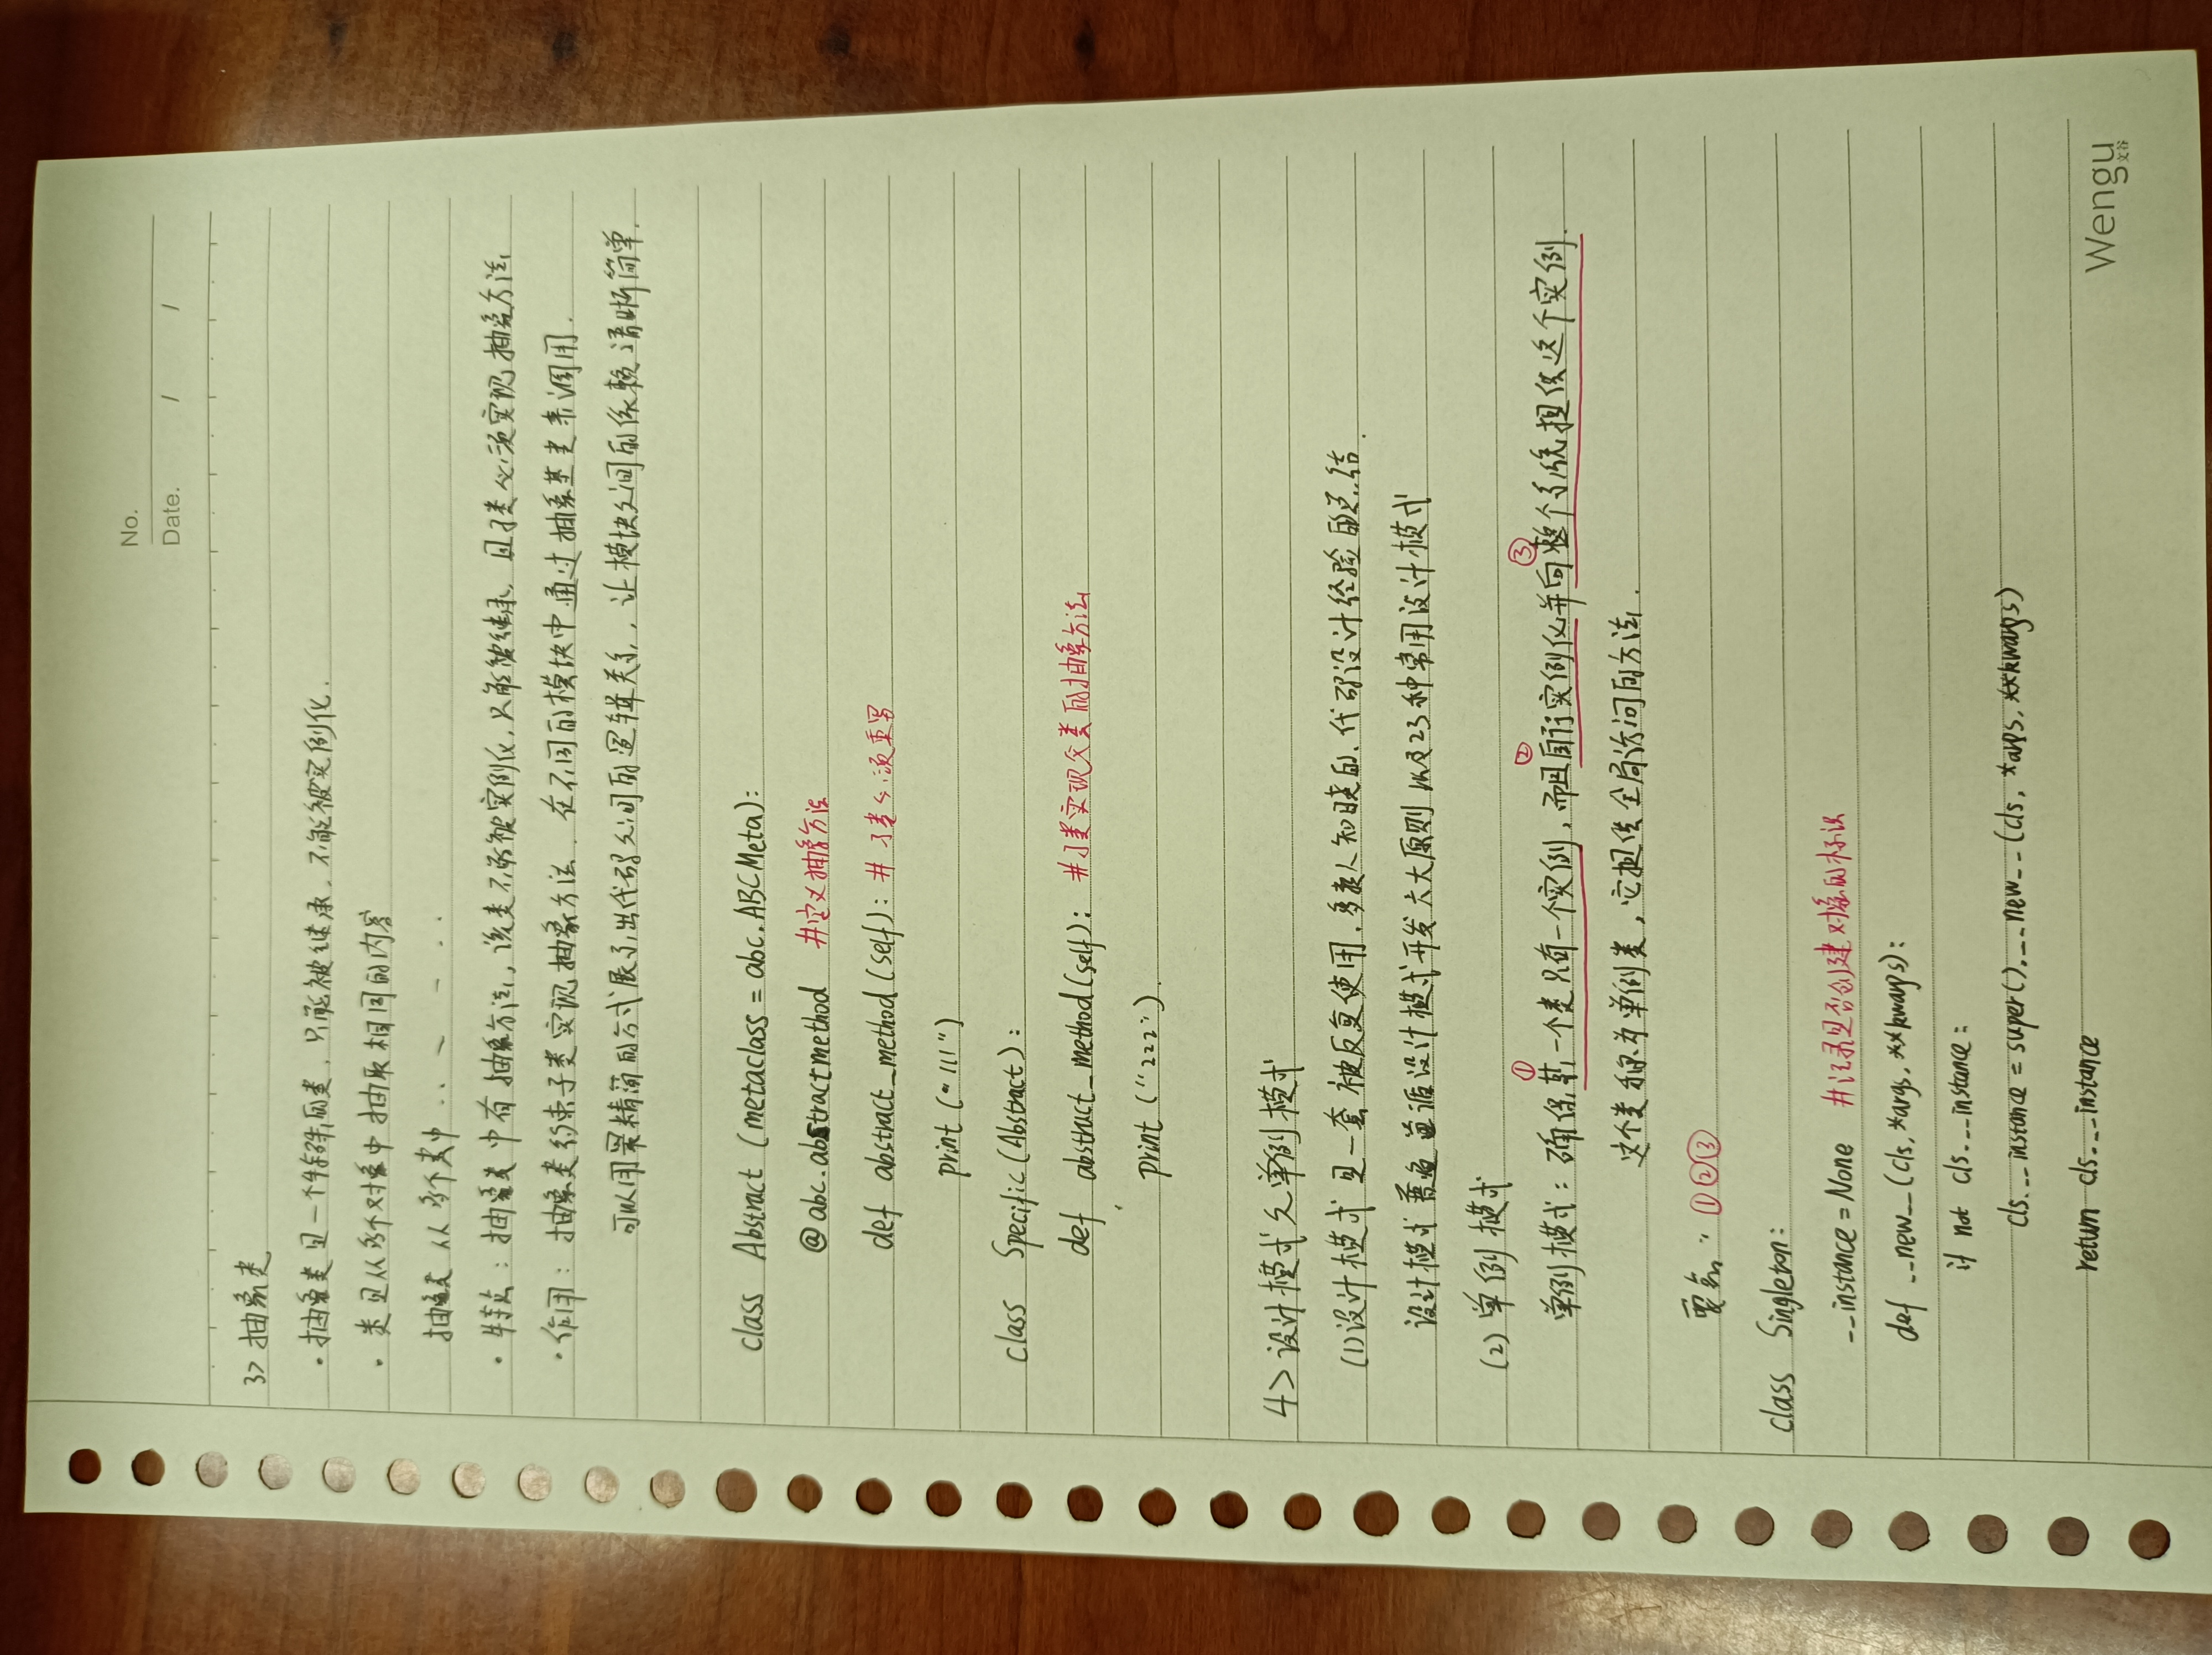 No.
Date. / /
3> 抽象类
· 抽象类是一个特殊的类,只能被继承,不能被实例化.
· 类是从多个对象中抽取相同的内容
抽象类 从多个类中 ‥ — — ‥
· 特点: 抽象类中有抽象方法, 该类不能被实例化, 只能被继承, 且子类必须实现抽象方法
· 作用: 抽象类约束子类实现抽象方法. 在不同的模块中通过抽象基类来调用.
可以用最精简的方式展示出代码之间的逻辑关系, 让模块之间的依赖清晰简单.
class Abstract (metaclass = abc.ABCMeta):
@abc.abstractmethod #定义抽象方法
def abstract_method (self): # 子类必须重写
print ("111")
class Specific (Abstract):
def abstruct_method (self): #子类实现父类的抽象方法
print ("222").
4> 设计模式之单例模式
(1) 设计模式是一套被反复使用, 多数人知晓的, 代码设计经验的总结.
设计模式普遍遵循设计模式开发六大原则以及23种常用设计模式
(2) 单例模式
① ② ③
单例模式: 确保某一个类只有一个实例, 而且自行实例化并向整个系统提供这个实例.
这个类称为单例类, 它提供全局访问的方法.
要点: ①②③
class Singleton:
__instance = None #记录是否创建对象的标识
def __new__ (cls, *args, **kwargs):
if not cls.__instance:
cls.__instance = super().__new__ (cls, *args, **kwargs)
return cls.__instance
Wengu
文谷